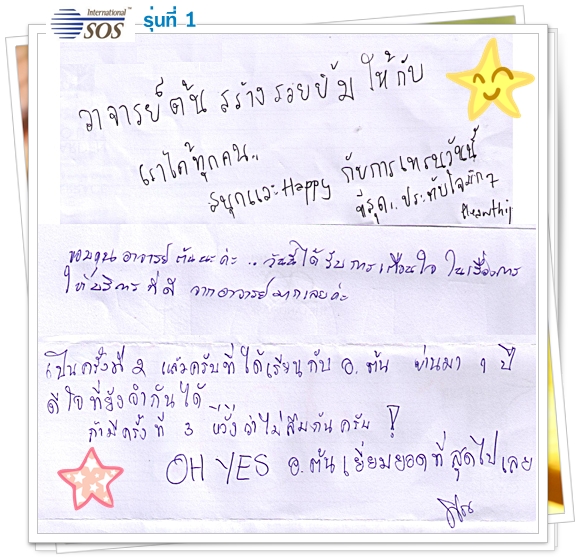 International
SOS รุ่นที่ 1
อาจารย์ต้น สร้างรอยยิ้ม ให้กับ
เราได้ทุกคน..
สนุกและHappy กับการเทรนวันนี้
ที่สุด.. ประทับใจมากๆ
ขอบคุณ อาจารย์ ต้นนะค่ะ .. วันนี้ได้ รับ การเตือนใจ ในเรื่องการ
ให้บริการ ที่ดี จากอาจารย์มากเลยค่ะ
เป็นครั้งที่ 2 แล้วครับที่ ได้เรียนกับ อ.ต้น ผ่านมา 1 ปี
ดีใจที่ยังจำกันได้
ถ้ามีครั้ง ที่ 3 หวังว่าไม่ลืมกันครับ !
OH YES อ.ต้น เยี่ยมยอดที่สุดไปเลย